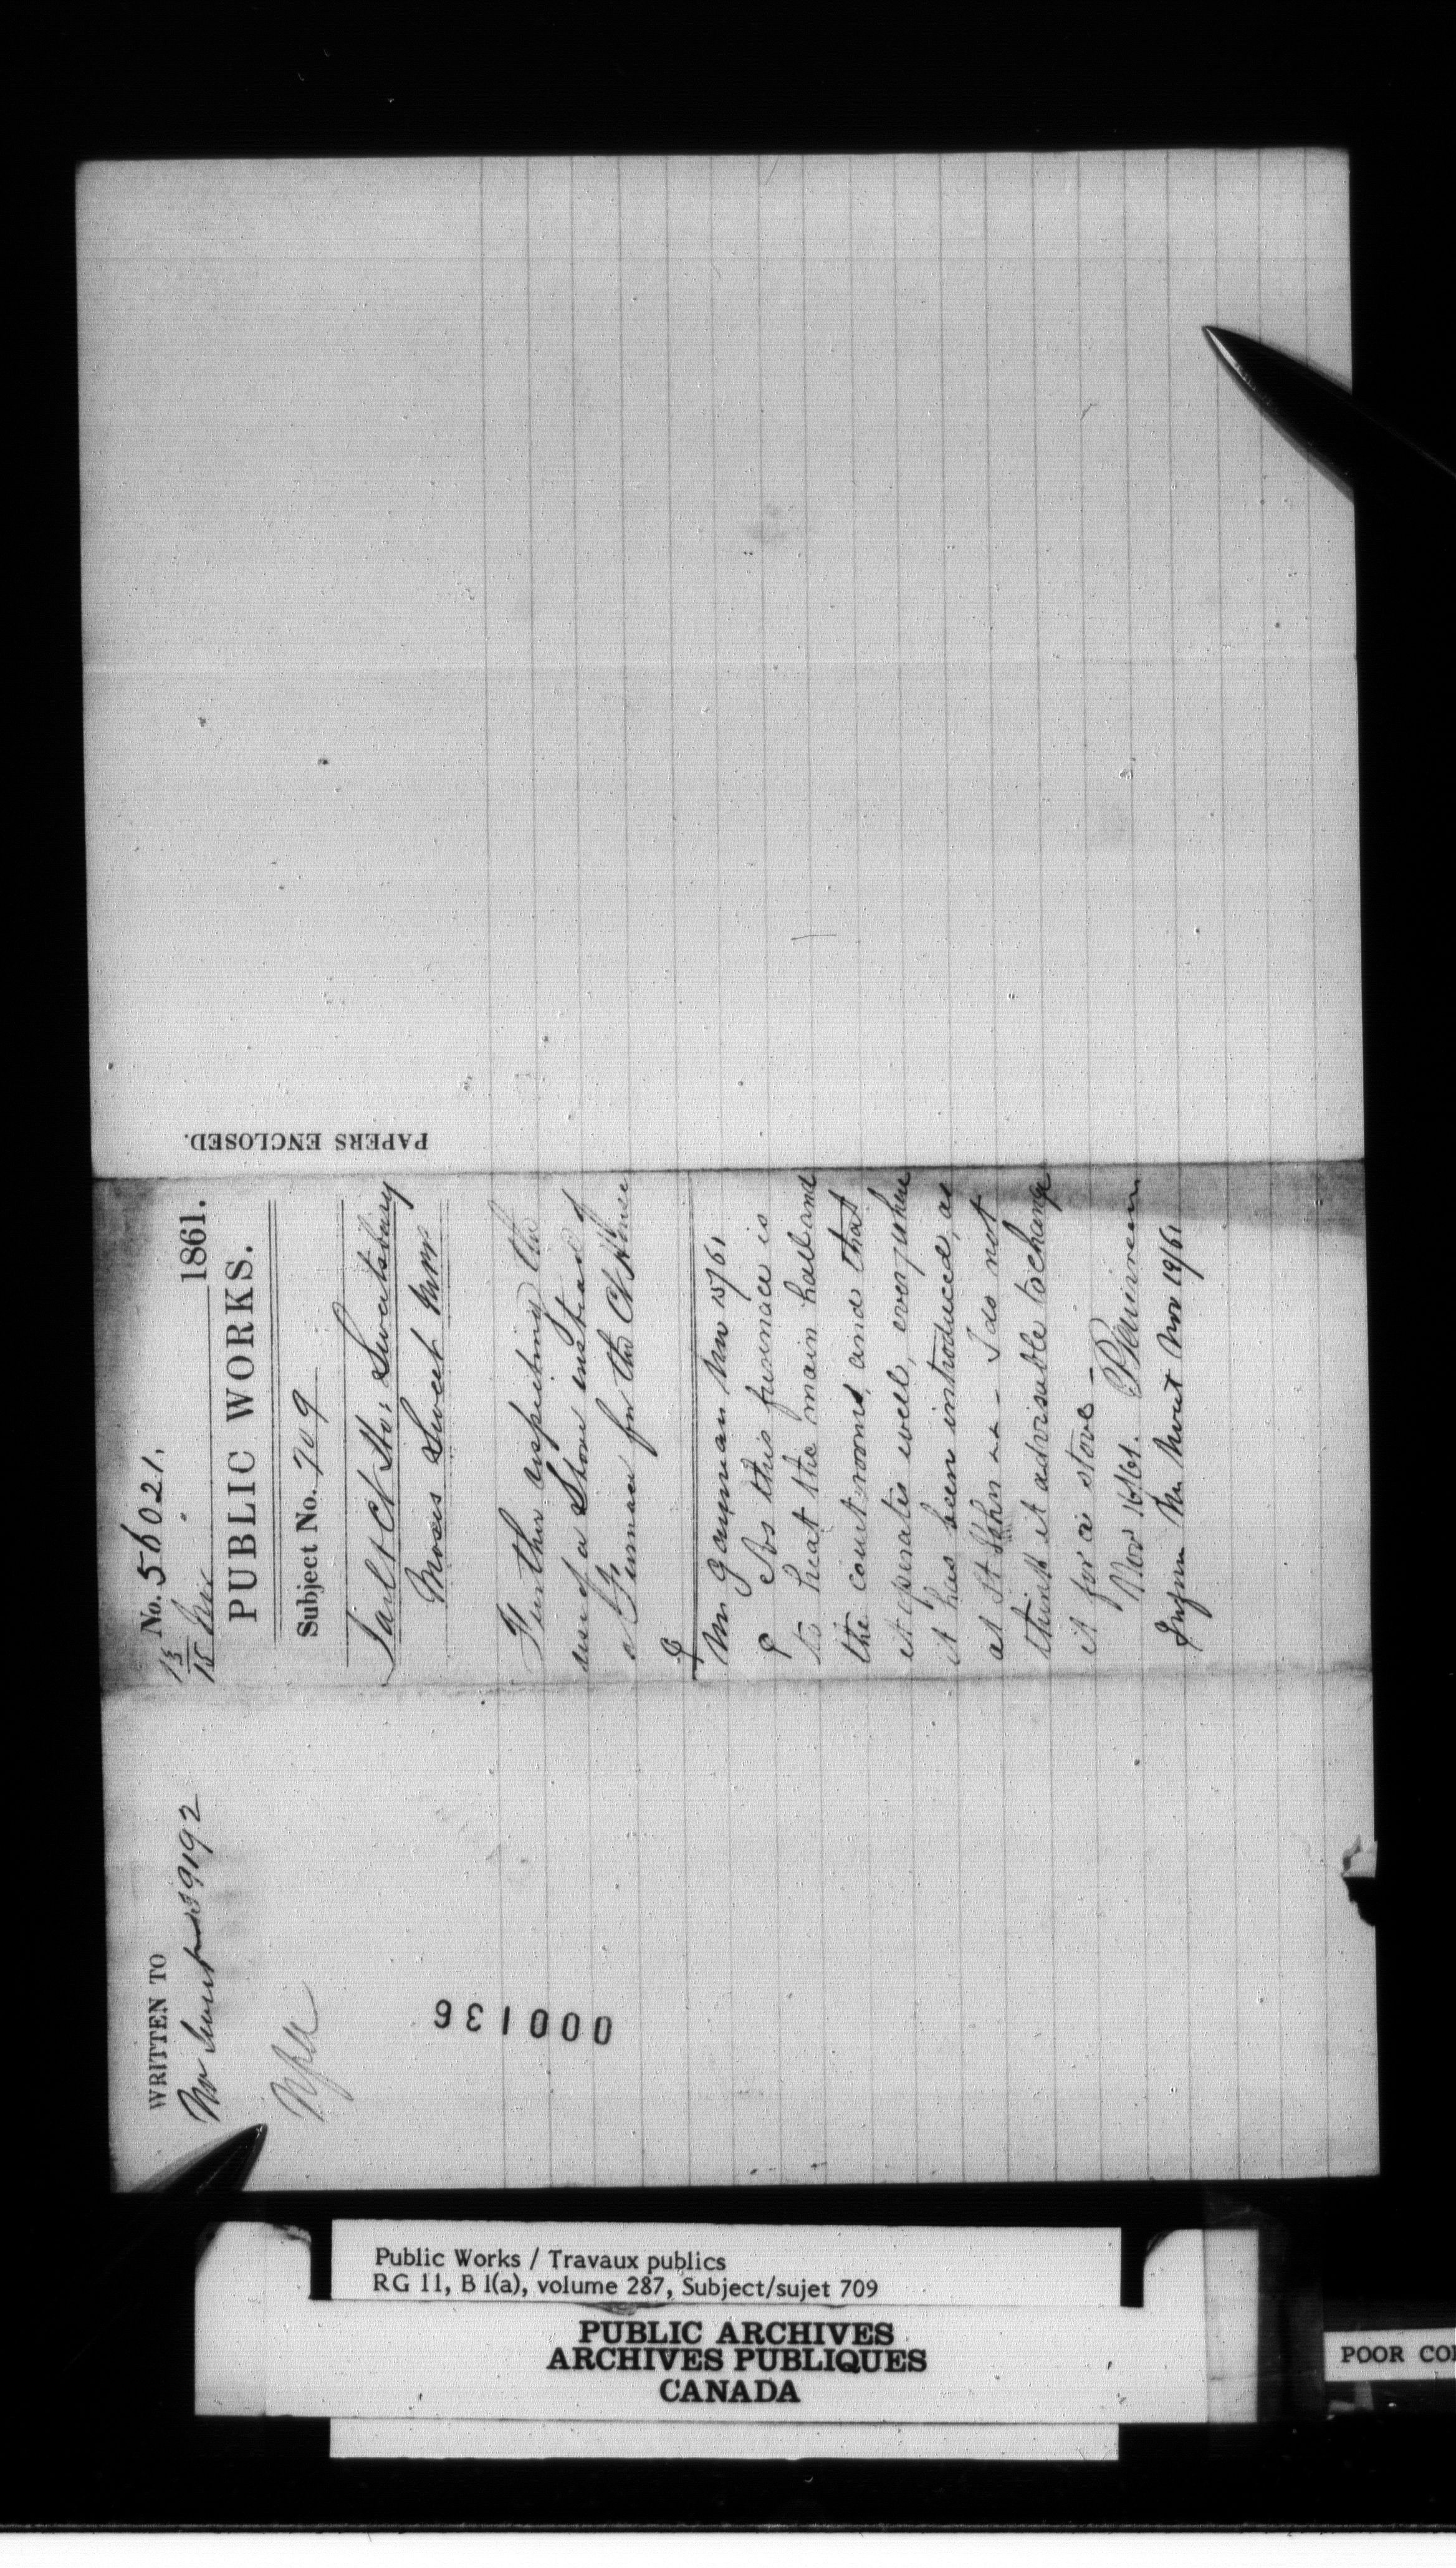 No. 56021.
13
15 Nov 1861.
PUBLIC WORKS.
Subject No. 709
Sault Ct Ho: Sweetsburg
Moses Sweet
Further respecting the
use of a Stove instead of
a Furnace for the Ct House
Mr Gauvreau Nov 15/61
As this furnace is
to heat the main hall and
the court rooms, and that
it operates well, everywhere
it has been introduced, as
at St John — I do not
think it advisable to change
it for a stove —
Nov 16/61. P Gauvreau
Inform Mr Sweet Nov 19/61
PAPERS ENCLOSED.
WRITTEN TO
Mr Sweet 39192
000136
Public Works / Travaux publics
RG 11, B 1(a), volume 287, Subject/sujet 709
PUBLIC ARCHIVES
ARCHIVES PUBLIQUES
CANADA
POOR CO